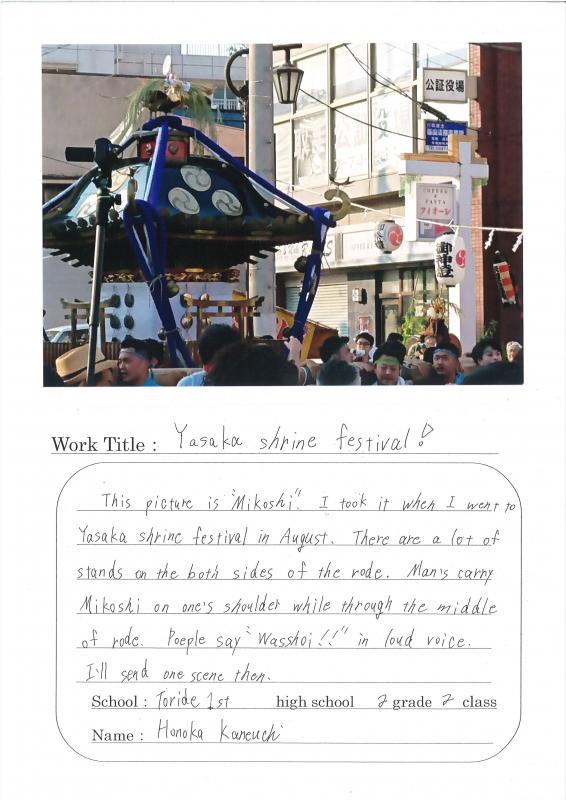 公証役場
COFFEE
&
PASTA
フィオーレ
P
御神燈
Work Title : Yasaka shrine festival!
This picture is "Mikoshi". I took it when I went to
Yasaka shrine festival in August. There are a lot of
stands on the both sides of the rode. Man's carry
Mikoshi on one's shoulder while through the middle
of rode. Poeple say "Wasshoi!!" in loud voice.
I'll send one scene then.
School : Toride 1st high school 2 grade 2 class
Name : Honoka Kaneuchi